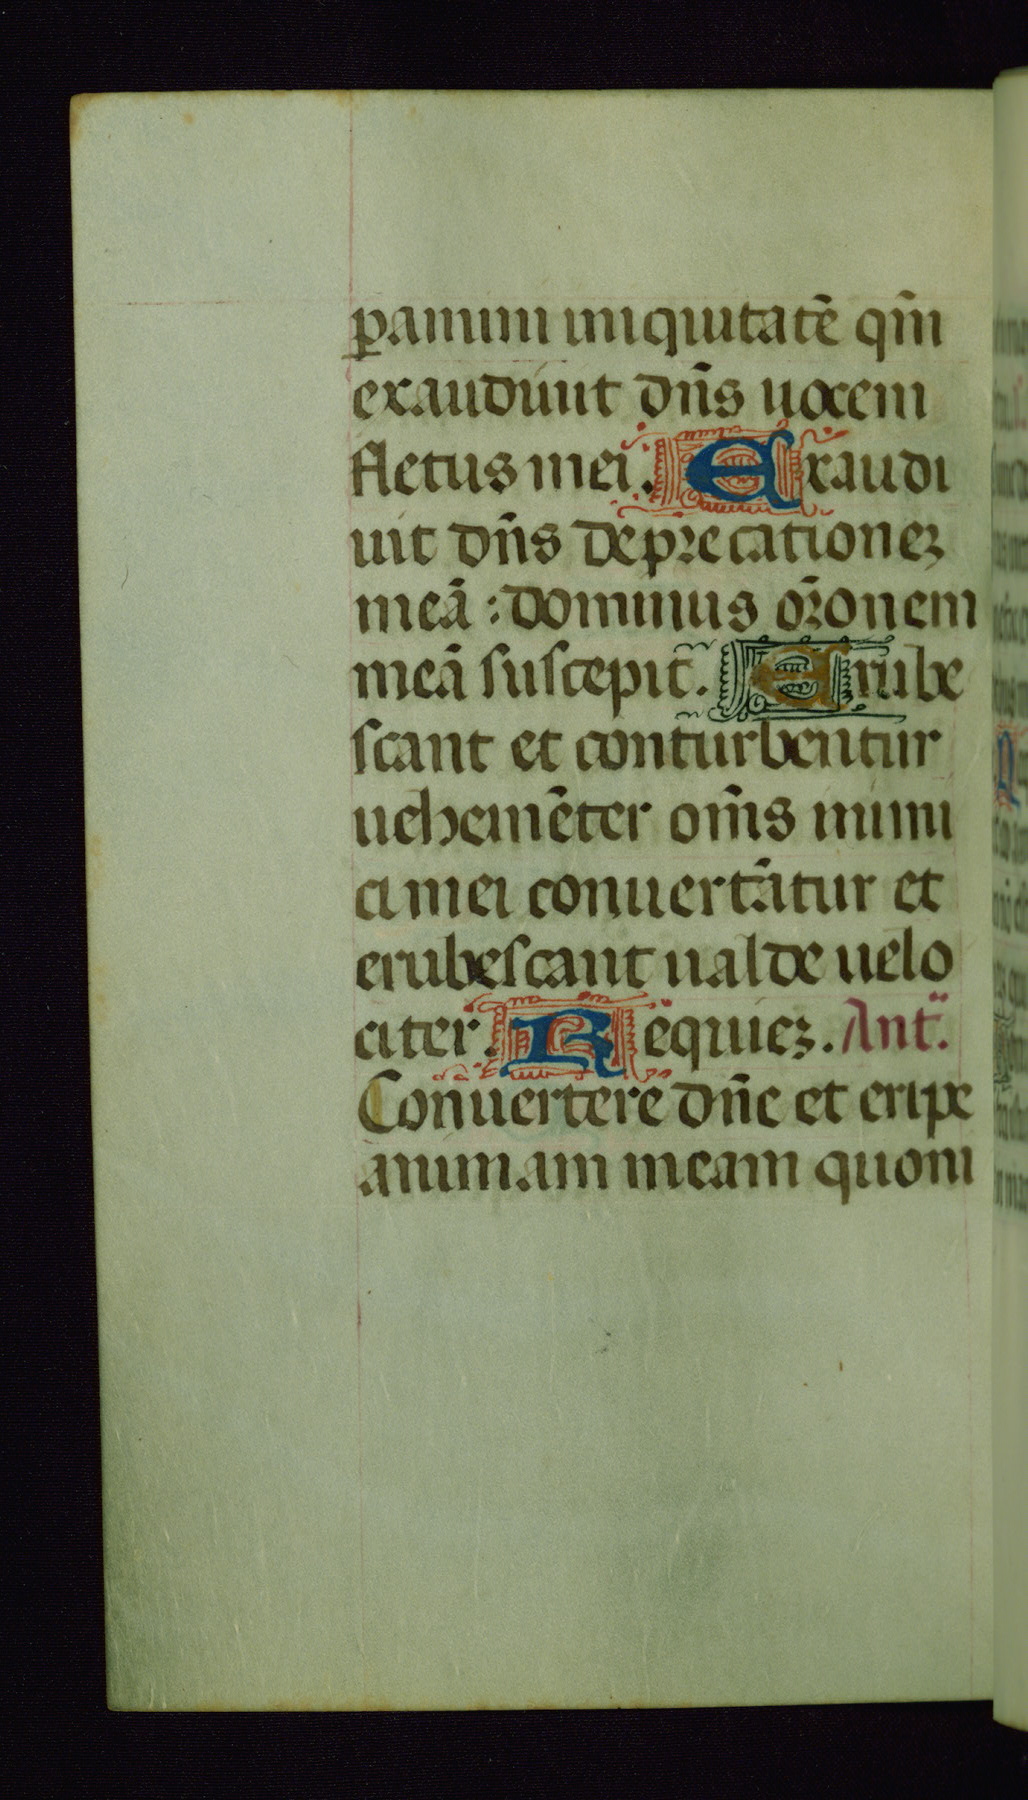 ꝑamini iniquitatē qm̄
exaudiuit dn̄s uocem
fletus mei. Exaudi
uit dn̄s deprecationeꝫ
meā : dominus or̄onem
meā suscepit. Erube
scant et conturbentur
uehemēter om̄s inimi
ci mei conuertātur et
erubescant ualde uelo
citer. Requieꝫ. Ant̄.
Conuertere dn̄e et eripe
animam meam quoni